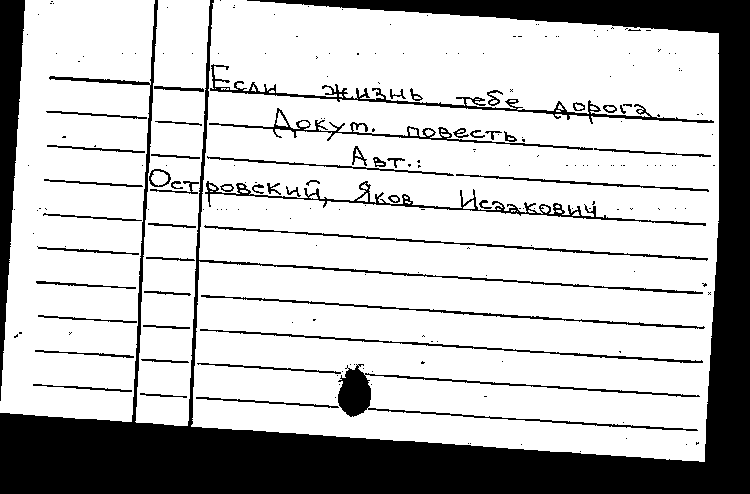 Если жизнь тебе дорога.
Докум. повесть.
Авт.:
Островский, Яков Исаакович.